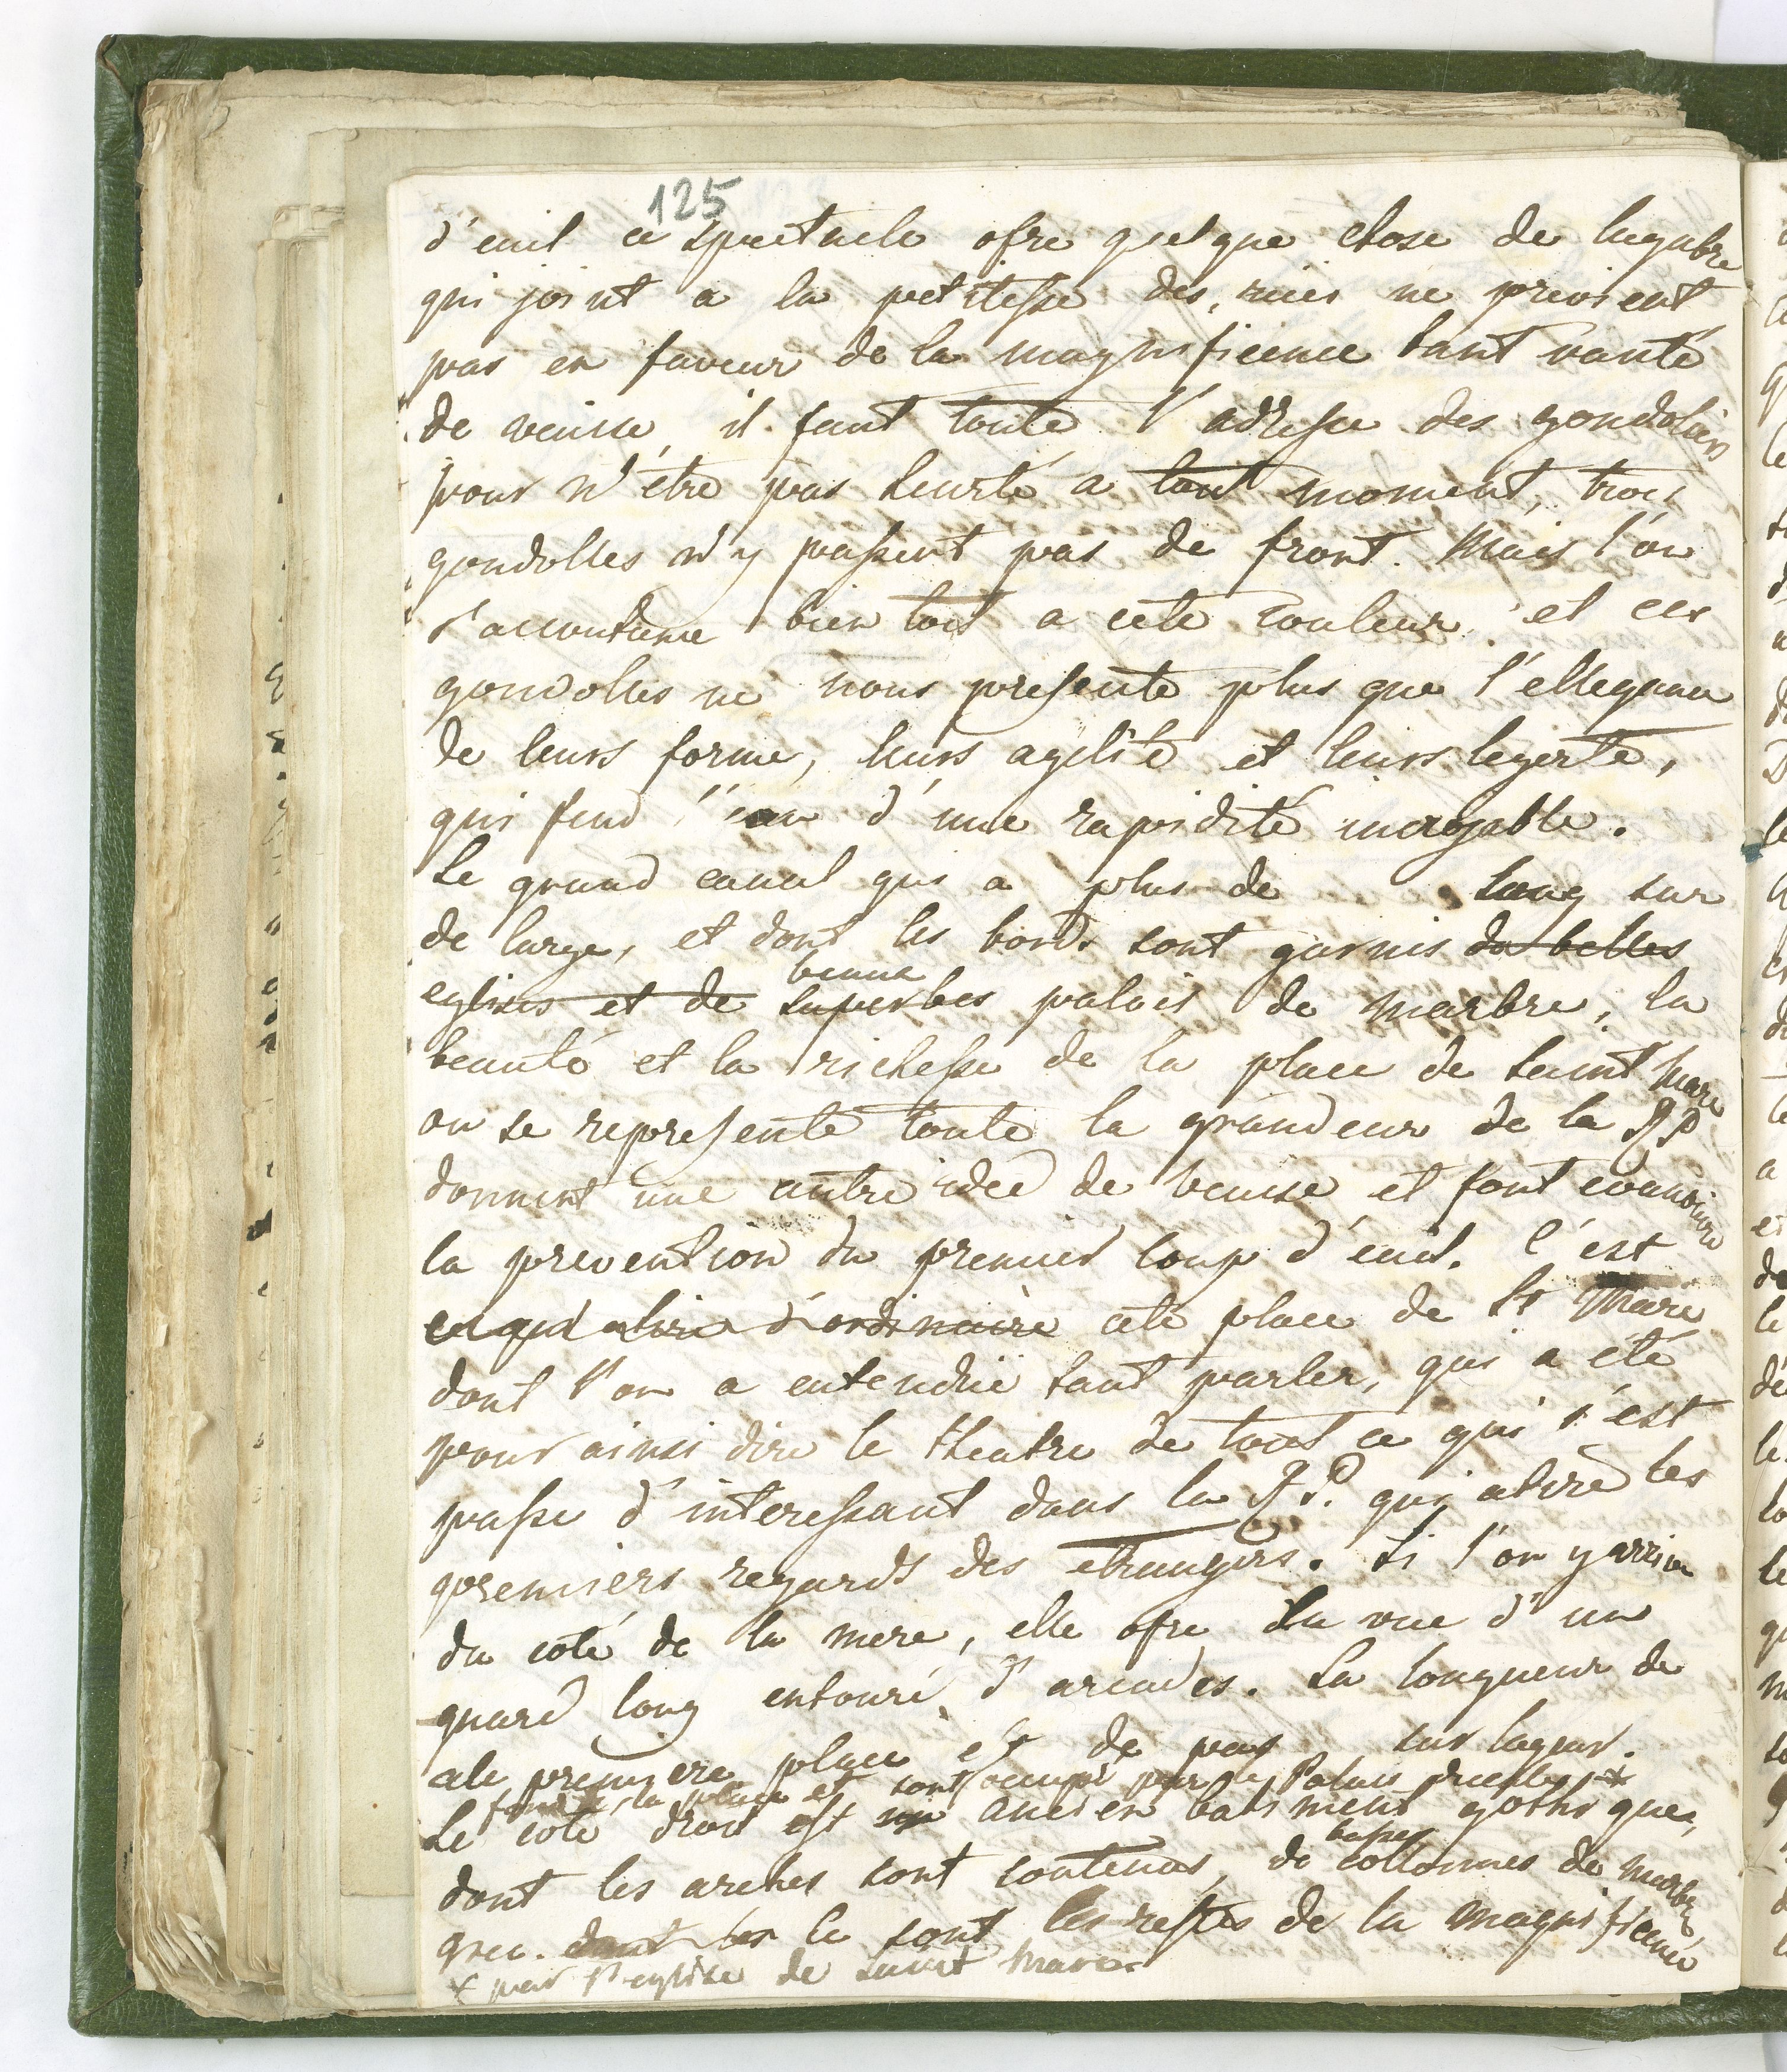 125
d'euil ce spectacle ofre quelque chose de lugubre
qui joint a la petitesse des rues ne previent
pas en faveur de la magnificence tant vanté
de venise, il faut toute l'adresse des gondoliers
pour n'être pas heurté a tout moment, trois
gondolles n'y passent pas de front. Mais l'on
s'accoutume bien tost a cete couleur et ces
gondolles ne nous presente plus que l'ellegance
de leurs forme, leurs agilité et leurs legerté,
qui fend l'eau d'une rapidité incroyable.
Le grand canal qui a plus de long sur
de large, et dont les bords sont garnis de belles
beaux
eglises et de superbes palais de marbre, la
beauté et la richesse de la place de Saint Marc
ou se represente toute la grandeur de la RP
donnent une autre idée de venise et font evanouire
la prevention du premier coup d'euil. C'est
d'ordinaire cete place de St Marc
dont l'on a entendue tant parler, qui a été
pour ainsi dire le theatre de tout ce qui s'est
passe d'interessant dans la RP. qui atire les
premiers regards des etrangers. Si l'on y arrive
du coté de la mere, elle ofre la vue d'un
quaré long entouré d'arcades. La longueur de
cete premiere place est de pas sur lageur.
fond de la place et sont occupé par le Palais ducale x
Le coté droit est un ancien batiment gothique,
basses
dont les arches sont soutenus, de collonnes de marbre
grec. dont les ce sont les restes de la magnificence
x par l'eglise de saint Marc